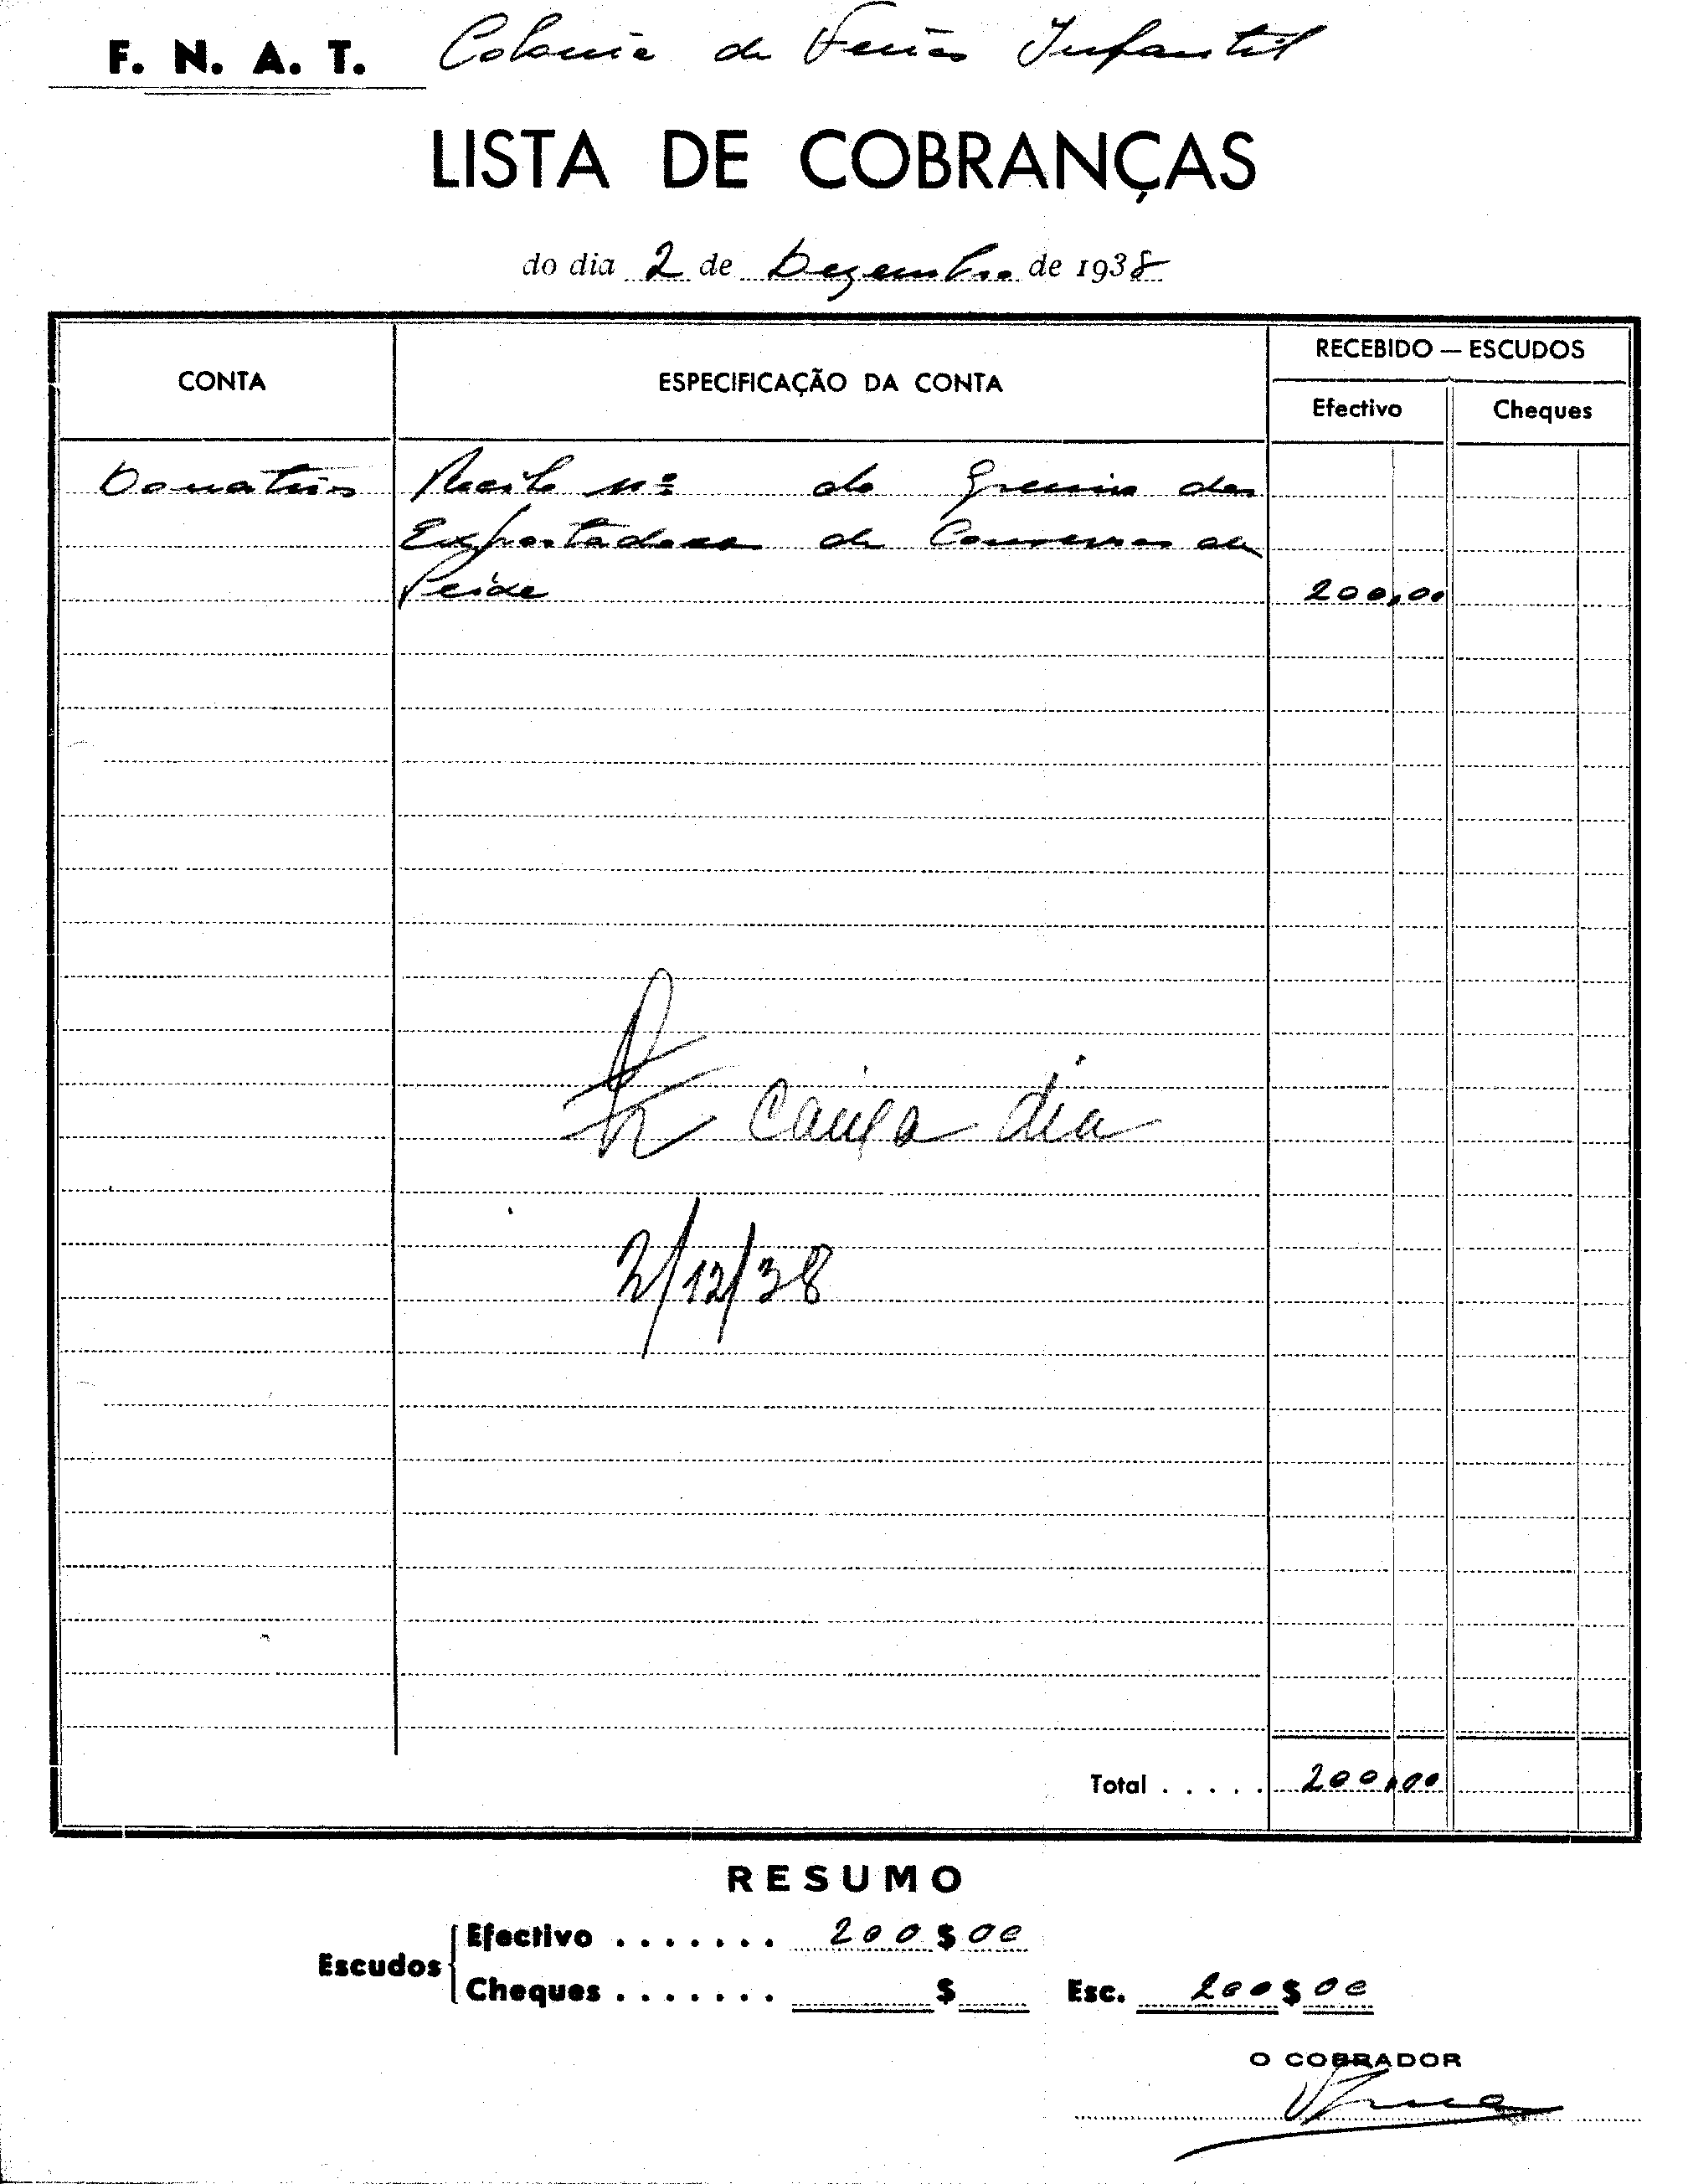 F. N. A. T. Colonia de Ferias Infantil
LISTA DE COBRANÇAS
do dia 2 de Dezembro de 1938
CONTA
ESPECIFICAÇÃO DA CONTA
RECEBIDO — ESCUDOS
Efectivo
Cheques
Donativos Recibo nº do Gremio dos
Exportadores de Conservas de
Peixe 200,00
caixa dia
2/12/38
Total . . . . . 200,00
RESUMO
Escudos
Efectivo . . . . . . . 200$00
Cheques . . . . . . . $
Esc. 200$00
O COBRADOR